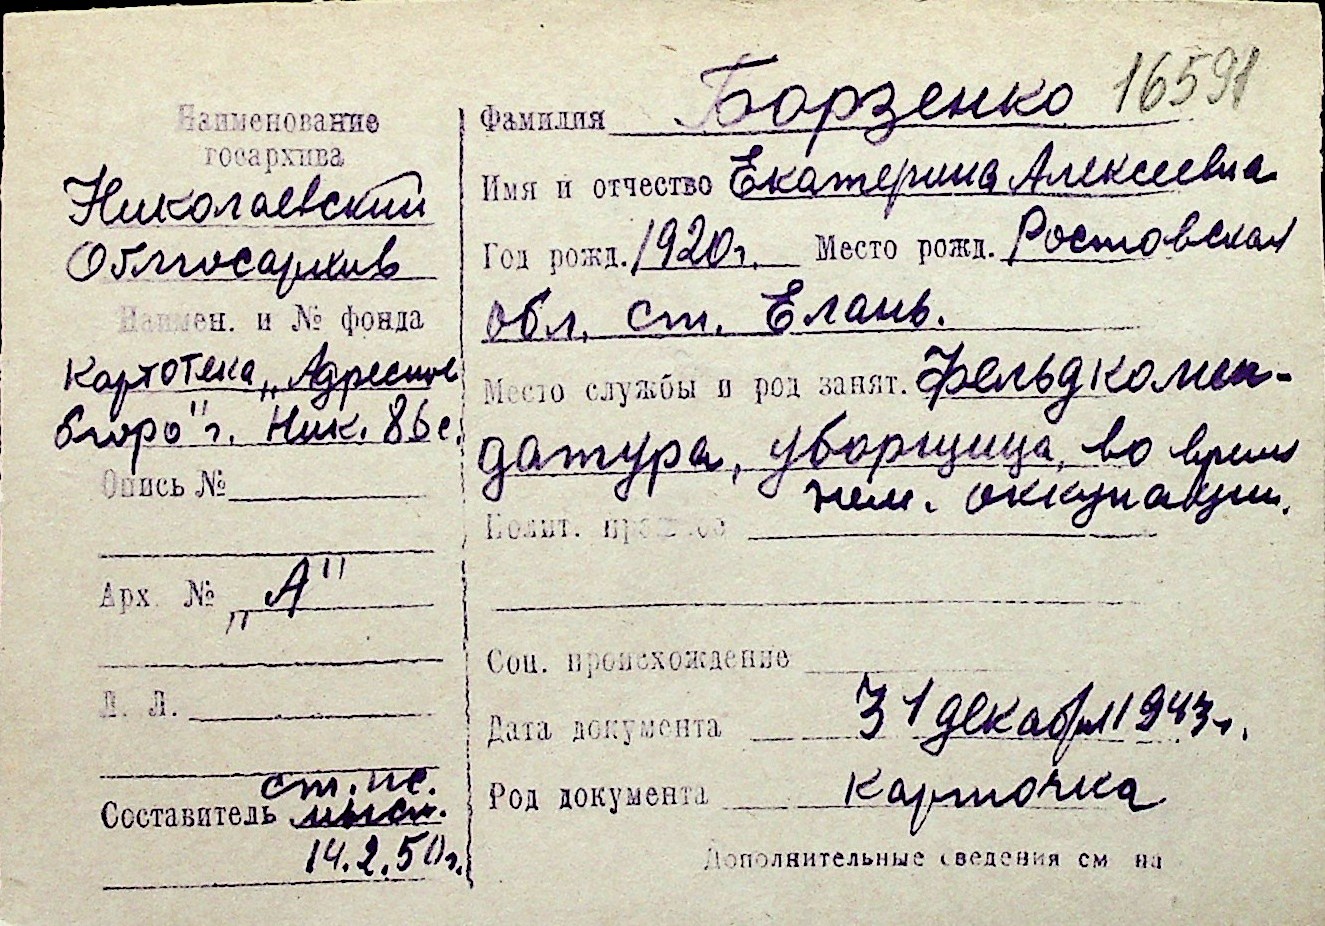 Наименование
госархива
Николаевский
Облгосархив
Наимен. и № фонда
Картотека „Адресное
бюро" г. Ник. 86 с.
Опись №
Арх. № „А"
Л. Л.
Составитель ст. н.с.
14.2.50г.
Фамилия Борзенко 16591
Имя и отчество Екатерина Алексеевна
Год рожд. 1920г. Место рожд. Ростовская
обл. ст. Елань.
Место службы и род занят. Фельдкомен-
датура, уборщица, во время
нем. оккупации.
Полит. прошлое
Соц. происхождение
Дата документа 31 декабря 1943г.
Род документа карточка
Дополнительные сведения см на